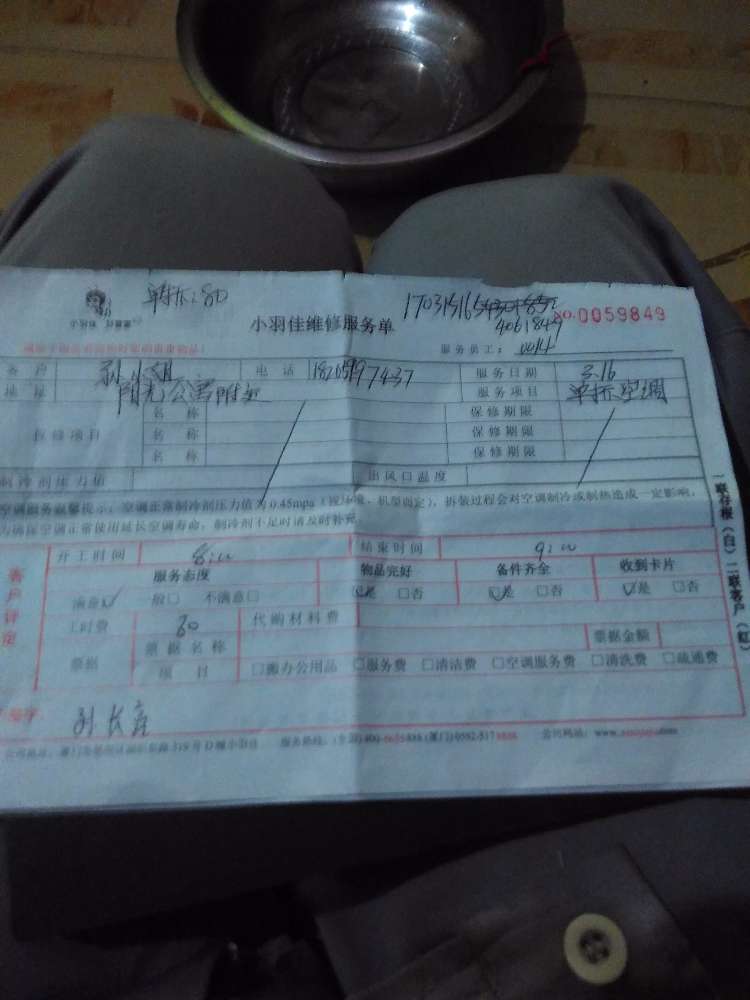 单拆:80
小羽佳维修服务单
170315165430185
4061849
NO.0059849
服务员工: 0014
客户 孙小姐 电话 18205997437 服务日期 3.16
地址 阳光公寓附近 服务项目 单拆空调
保修项目
名称 保修期限
名称 保修期限
名称 保修期限
制冷剂压力值 出风口温度
空调服务温馨提示:空调正常制冷剂压力值为0.45mpa(视环境、机型而定),拆装过程会对空调制冷或制热造成一定影响,
为确保空调正常使用延长空调寿命,制冷剂不足时请及时补充。
客户评定
开工时间 8:00 结束时间 9:00
服务态度 物品完好 备件齐全 收到卡片
满意☑ 一般□ 不满意□ ☑是 □否 ☑是 □否 ☑是 □否
工时费 80 代购材料费
票据 票据名称 票据金额
项目 □搬办公用品 □服务费 □清洁费 □空调服务费 □清洗费 □疏通费
一联存根(白) 二联客户(红)